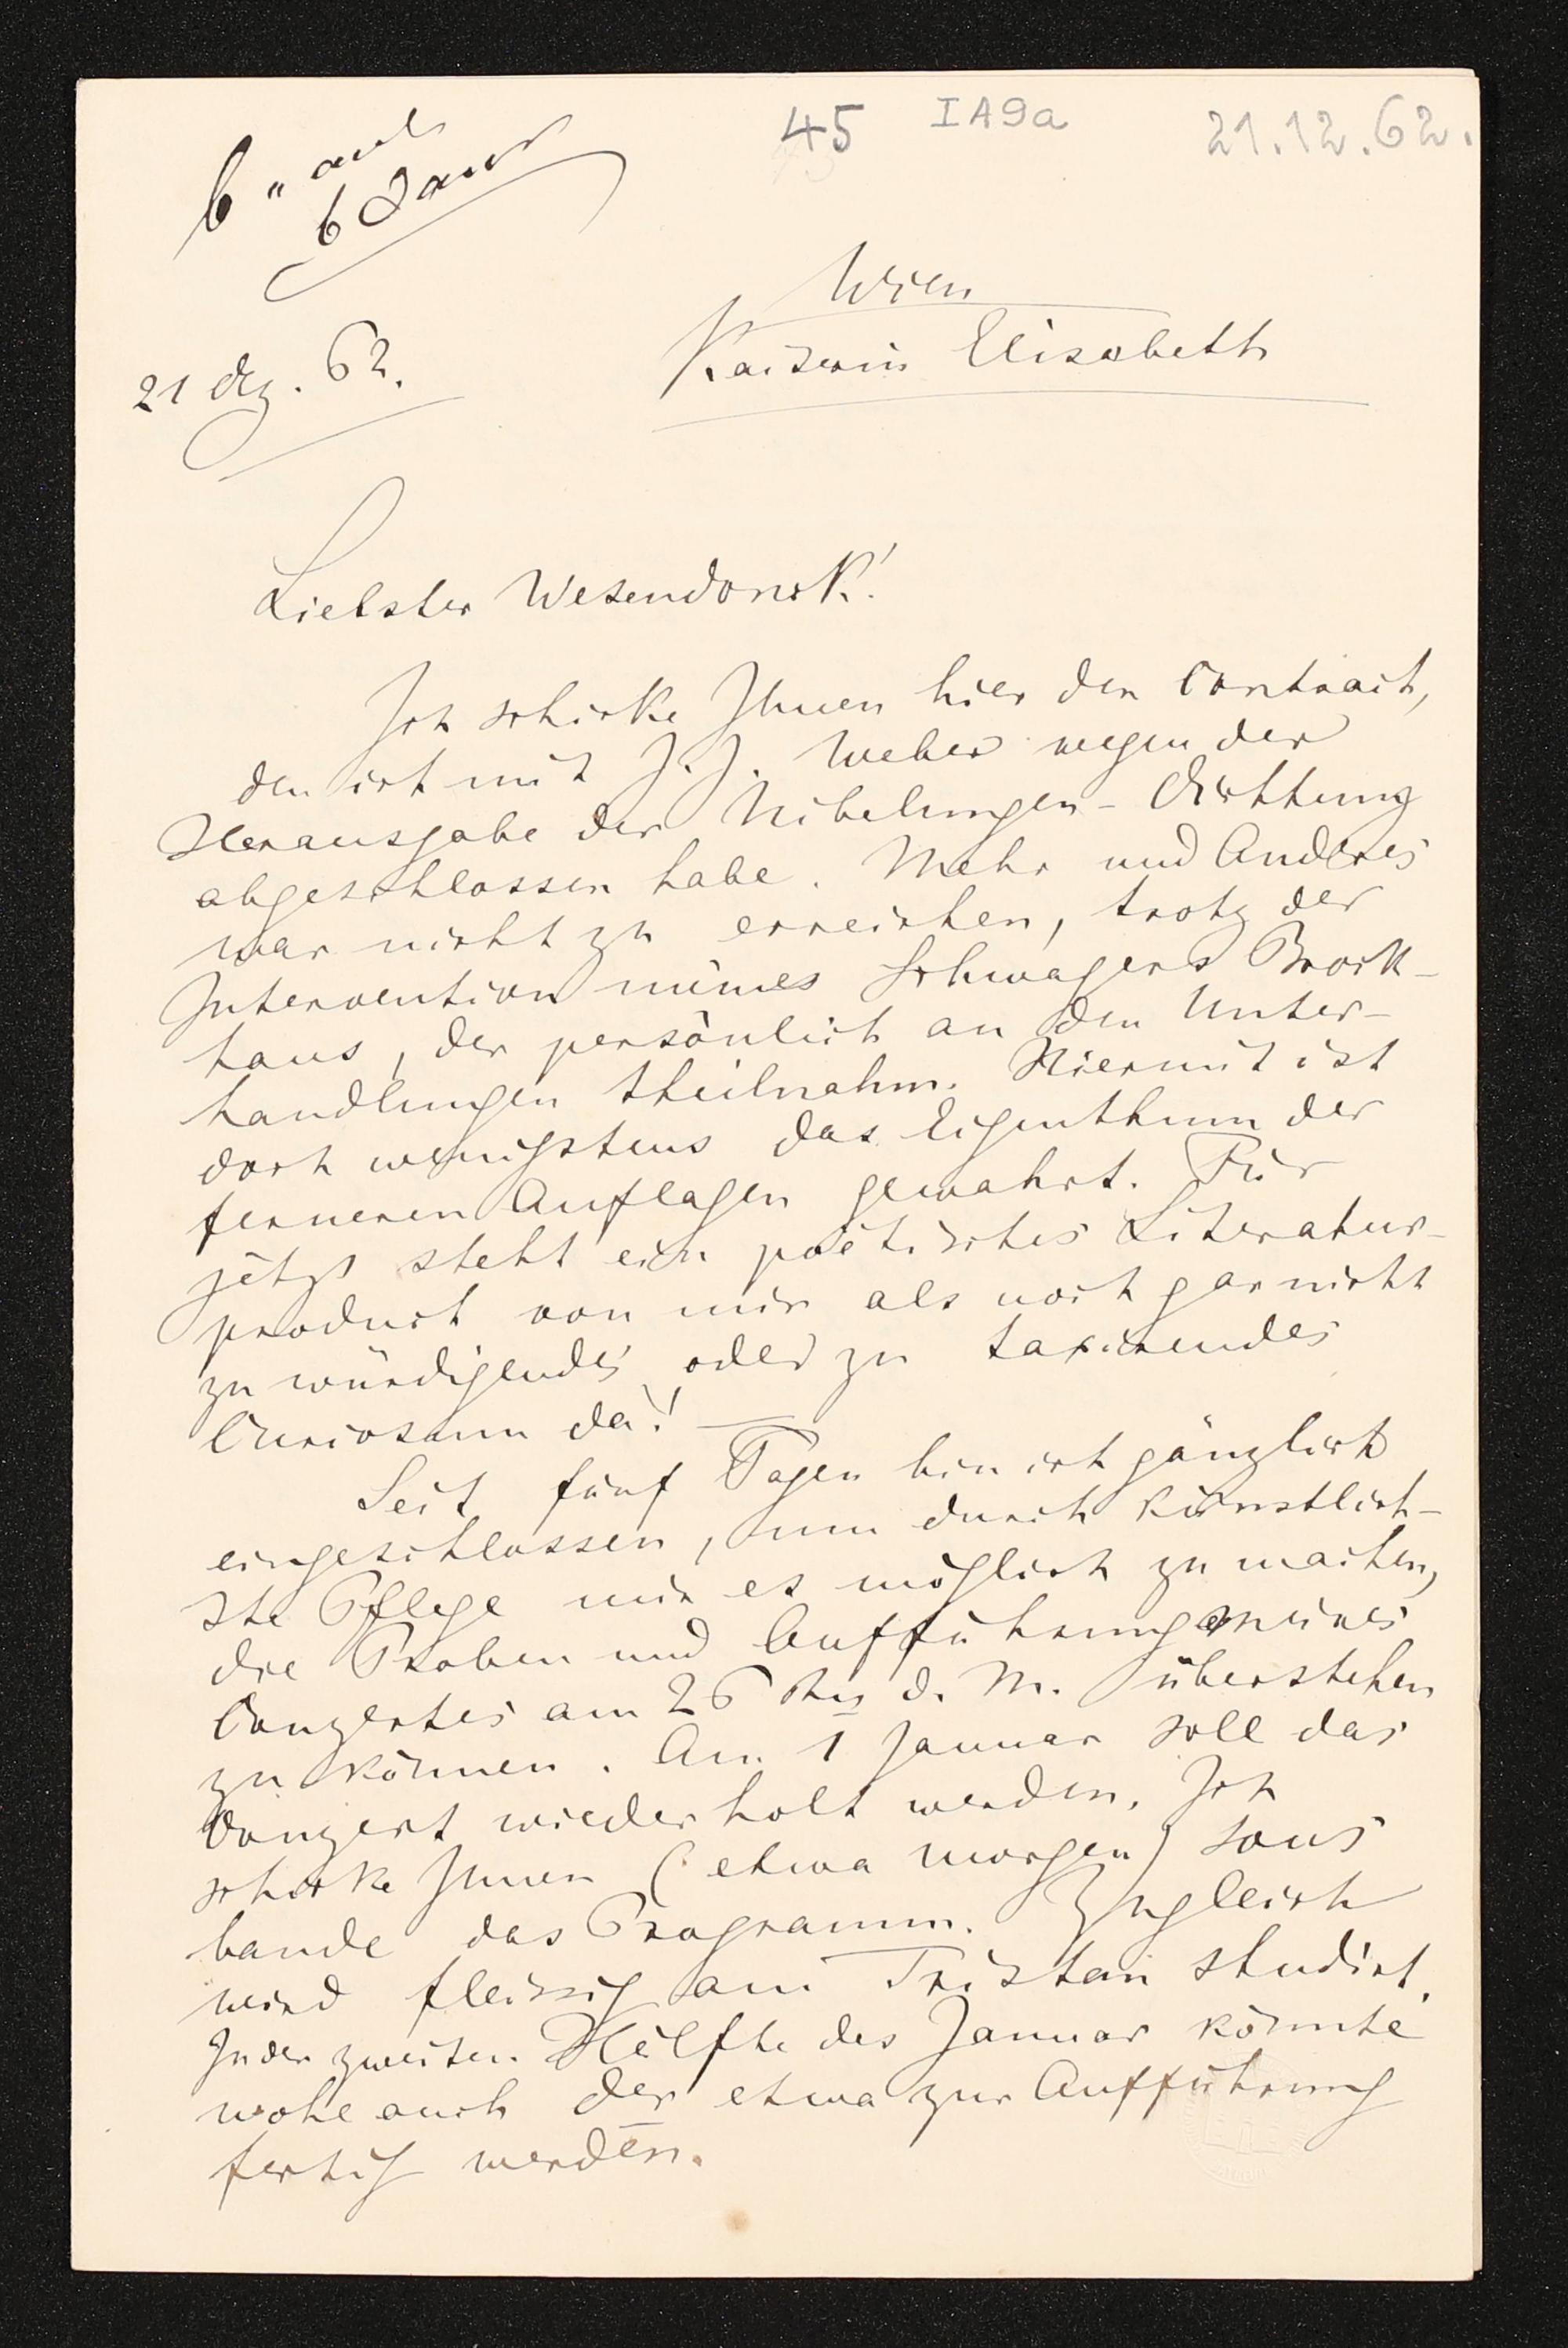 45 IA9a 21.12.62.
6 " aul
6 Janr
Wien
Kaiserin Elisabeth
21 dez. 62.
Liebster Wesendonck!
Ich schicke Ihnen hier den Contract,
den ich mit J.J. Weber wegen der
Herausgabe der Nibelungen-Dichtung
abgeschlossen habe. Mehr und Anderes
war nicht zu erreichen, trotz der
Intervention meines Schwagers Brock-
haus, der persönlich an den Unter-
handlungen theilnahm. Hiermit ist
doch wenigstens das Eigenthum der
ferneren Auflagen gewahrt. Für
jetzt steht ein poëtisches Literatur-
product von mir als noch gar nicht
zu würdigendes oder zu taxirendes
Curiosum da! —
Seit fünf Tagen bin ich gänzlich
eingeschlossen, um durch künstlich-
ste Pflege mir es möglich zu machen,
die Proben und Aufführung meines
Conzertes am 26 d. M. überstehen
zu können. Am 1 Januar soll das
Conzert wiederholt werden. Ich
schicke Ihnen (etwa morgen) sous
bande das Programm. Zugleich
wird fleissig am Tristan studirt.
In der zweiten Hälfte des Januar könnte
wohl auch der etwa zur Aufführung
fertig werden.